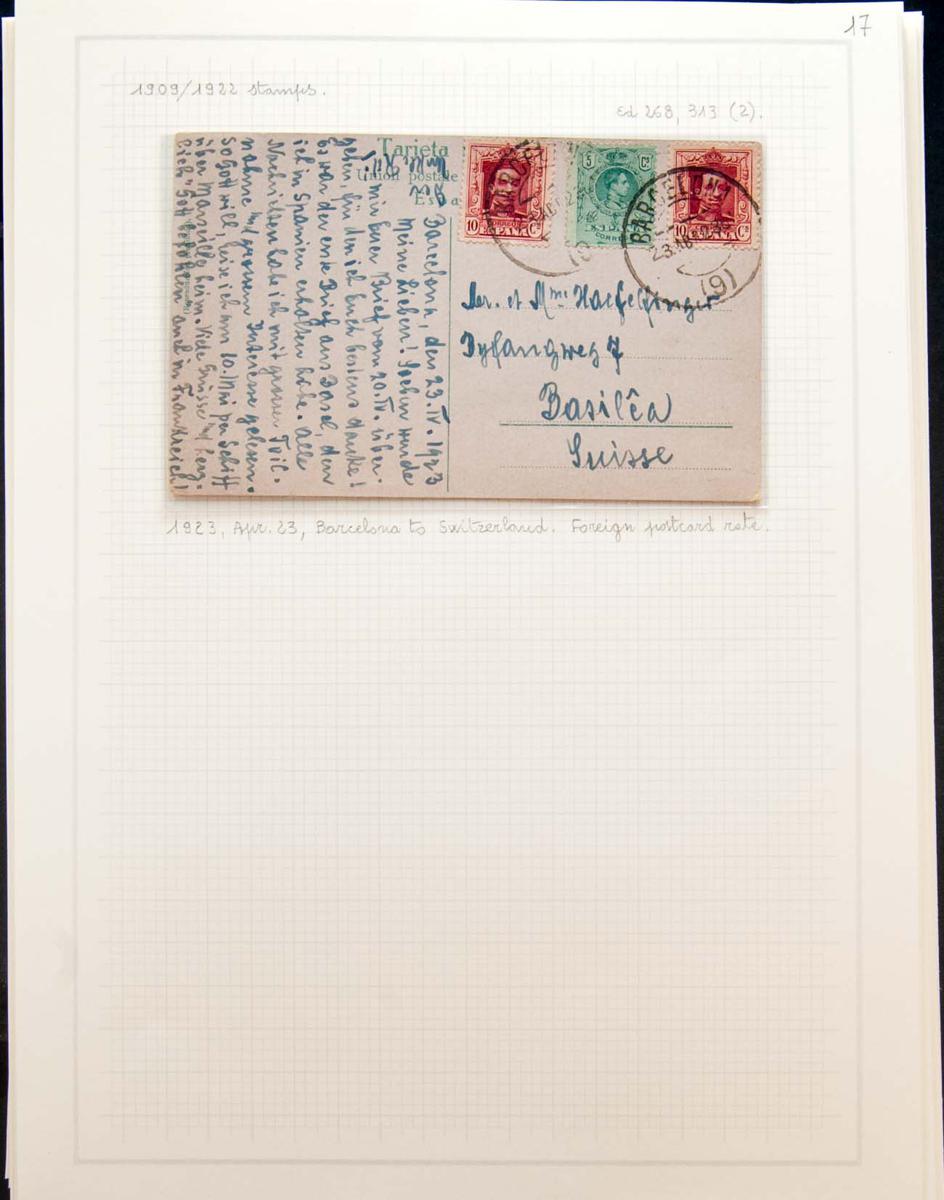 17
1909/1922 stamps.
Ed 268, 313 (2).
Tarjeta
Union postale
Espa
10 Cs
5 Cs
CORREOS
10 Cs
BARCELONA
BARCELONA
23.ABR.23
(9)
Mr. et Mme Haefelfinger
Dyfangweg 7
Basilêa
Suisse
Barcelona, den 23. IV. 1923
Meine Lieben! Soeben wurde
mir Euer Brief vom 20. IV. über-
geben, für den ich Euch bestens danke!
Es war der erste Brief aus Basel, den
ich in Spanien erhalten habe. Alle
Nachrichten habe ich mit grosser Teil-
nahme u/ grossem Interesse gelesen.
So Gott will, reise ich am 10. per Schiff
über Marseille heim. Viele Grüsse u/ herz-
lich Gott befohlen auch in Frankreich!
1923, Apr. 23, Barcelona to Switzerland. Foreign postcard rate.